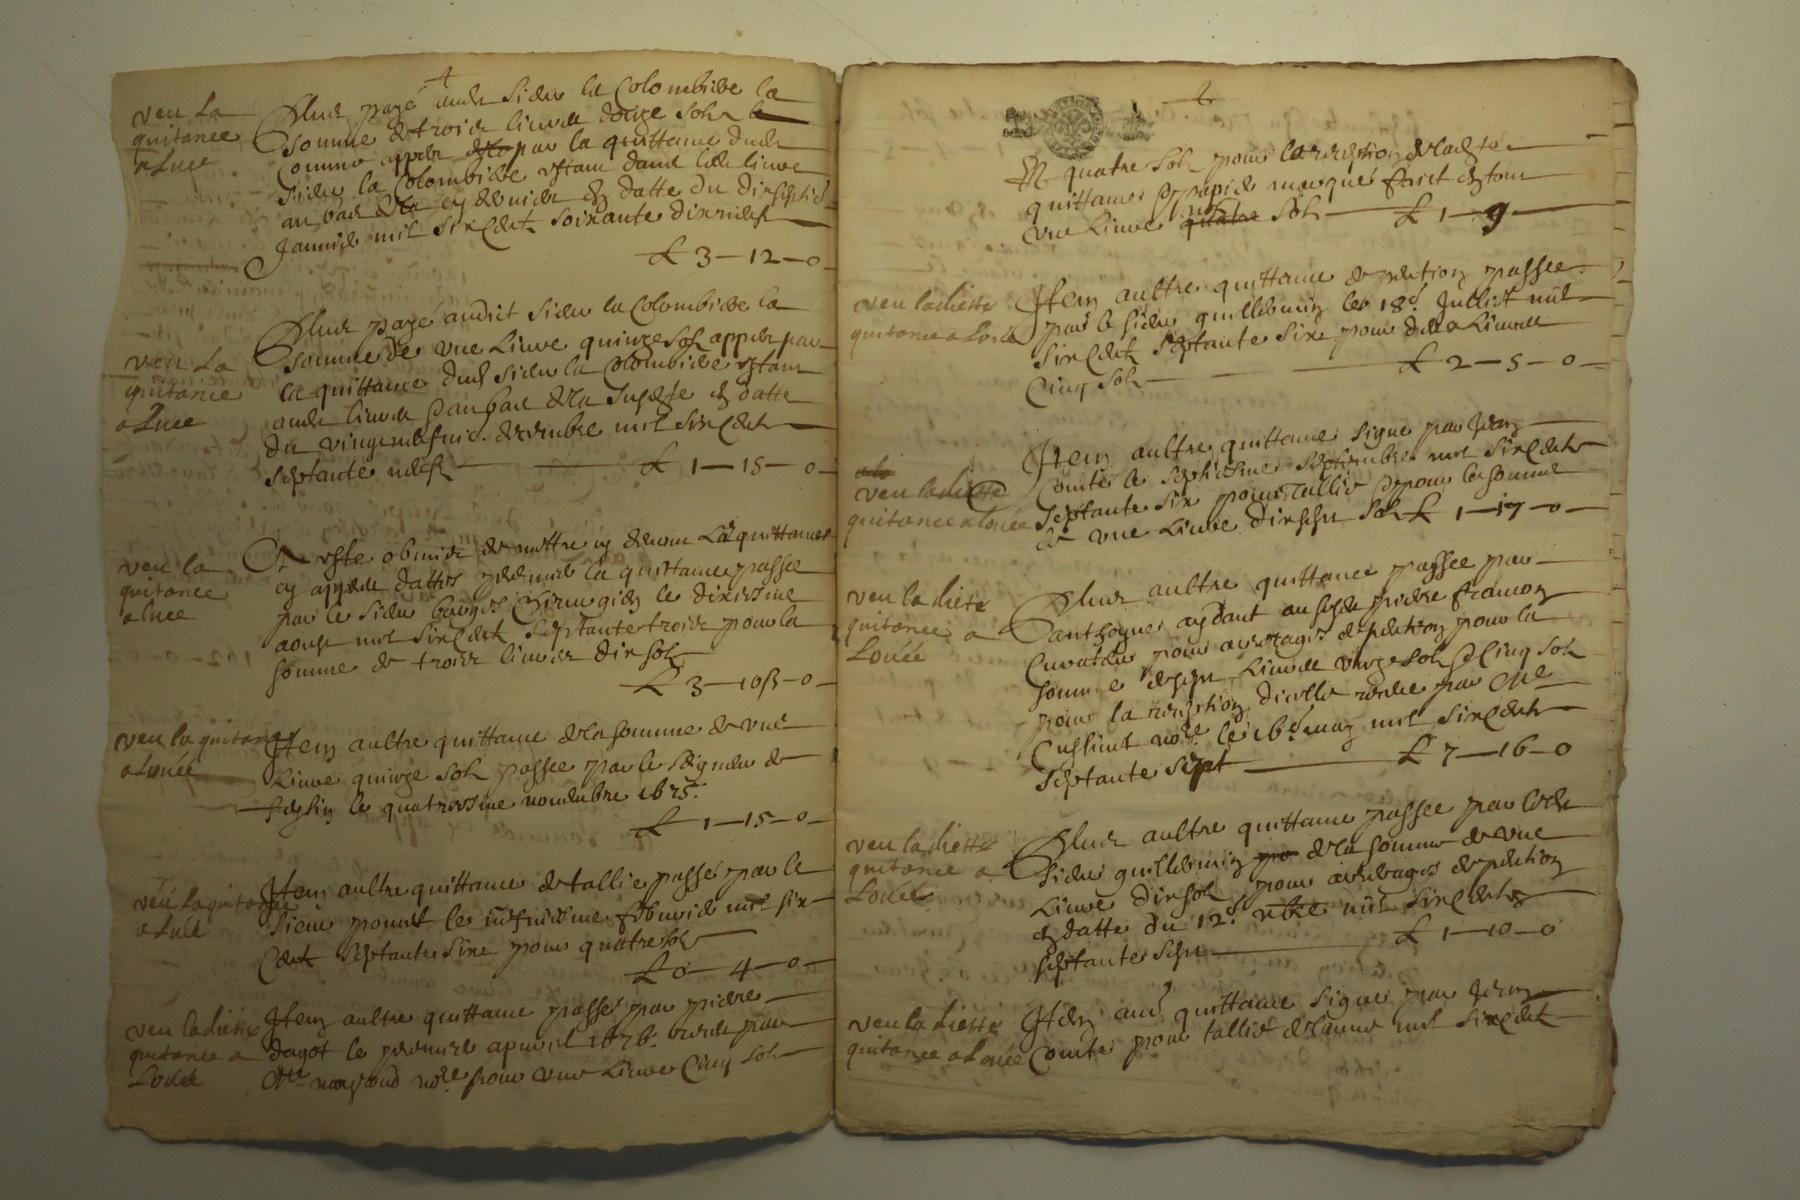 veu La
quitance
a Luee
Plus payé audt Sieur la Colombiere la
somme de troix livres douze sols
comme appert par la quittance dudt
Sieur la Colombiere estant dans led livre
au bas en datte du dixseptie
Janvier mil six cent soixante dix neuf
£ 3 — 12 — 0
veu La
quitance
a Luee
Plus payé audict Sieur la Colombiere la
somme de une Livre quinze sols appert par
la quittance dud Sieur la Colombiere estant
audt livre au bas de la susdte en datte
du vingt neufvie decembre mil six cent
septante neuf £ 1 — 15 — 0
veu la
quitance
a luee
A este obmis de mettre cy devant La quittances
cy appres dattes premiere la quittance passee
par le Sieur chirurgien le dixiesme
aoust mil six cent septante troix pour la
somme de troix livres dix sols
£ 3 — 10ß — 0
veu la quitance
a Louée
Item aultre quittance de la somme de une
Livre quinze sols passee par le Seigneur de
le quatriesme novembre 1675.
£ 1 — 15 — 0
veu la quitance
a Luée
Item aultre quittance de tallie passé par le
Sieur le neufviesme febvrier mil six
cent septante six pour quatre sols
£ 0 — 4 — 0
veu ladicte
quitance a
Louée
Item aultre quittance passée par pierre
dagot le premier apvril 1676. receue par
Me notre pour une Livre Cinq sols
Et quatre sols pour la reception de ladte
quittance et papier marqué faict en tout
une Livre neuf sols £ 1 — 9
veu ladicte
quitance a Louée
Item aultre quittance de pention passee
par le Sieur guillemin le 18e Juillet mil
six cent septante six pour deux Livres
Cinq sols £ 2 — 5 — 0
veu ladicte
quitance a Louée
Item aultre quittance signe par Jean
Comte le septiesme septembre mil six cent
septante six pour tallie et pour la somme
de une Livre dix sept sols £ 1 — 17 — 0
veu ladicte
quitance a
Louée
Plus aultre quittance passee par
anthoyne aydant au sieur pierre
Curateur pour arrerages de pention pour la
somme de sept Livres unze sols et Cinq sols
pour la reception dicelle receue par Me
notre le 16e may mil six cent
septante sept £ 7 — 16 — 0
veu ladicte
quitance a
Louée
Plus aultre quittance passee par led
Sieur guillemin de la somme de une
Livre dix sols pour arrerages de pention
en datte du 12e mil six cent
septante sept £ 1 — 10 — 0
veu ladicte
quitance a Louée
Item aue quittance signe par Jean
Comte pour tallies de lannee mil six cent